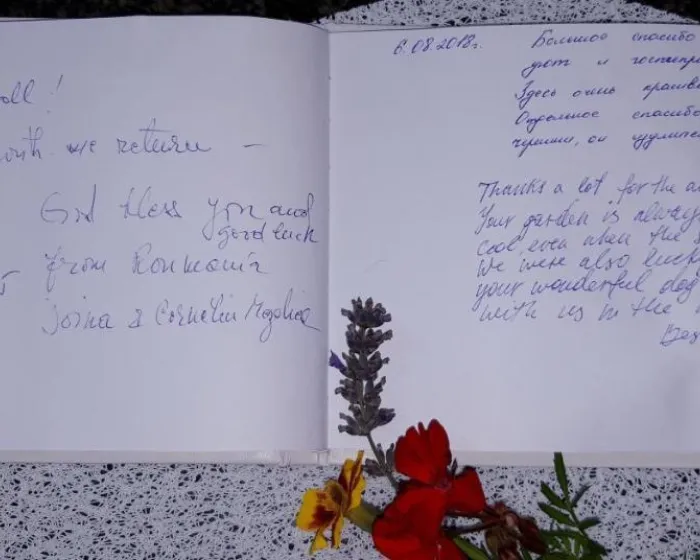 oll!
we return —
God bless you and
good luck
from Roumania
& Corneliu
6.08.2018г.
Большое спасибо
уют и гостепри
Здесь очень красив
Отдельное спасибо
Thanks a lot for the a
Your garden is always
cool, even when the
We were also luck
your wonderful dog
with us in the